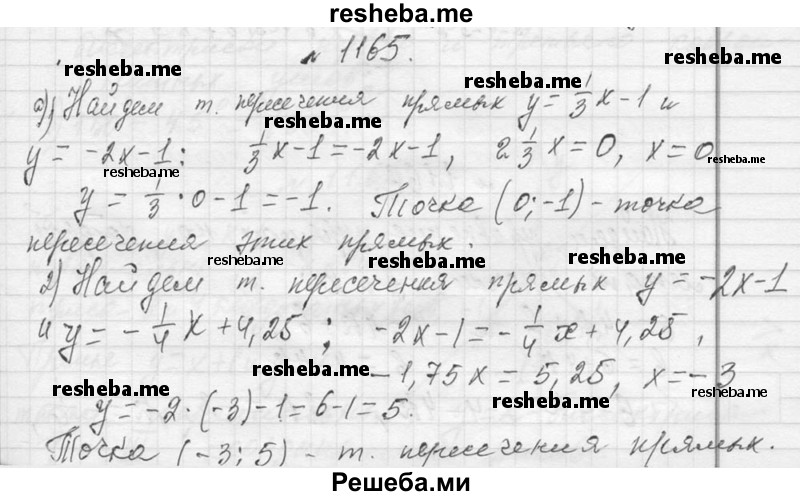 resheba.me
№ 1165.
resheba.me resheba.me
а) 1) Найдем т. пересечения прямых y = 1/3 x - 1 и
resheba.me
y = -2x - 1; 1/3 x - 1 = -2x - 1, 2 1/3 x = 0, x = 0
resheba.me resheba.me
y = 1/3 · 0 - 1 = -1. Точка (0; -1) - точка
resheba.me
пересечения этих прямых.
resheba.me resheba.me
2) Найдем т. пересечения прямых y = -2x - 1
и y = - 1/4 x + 4,25; -2x - 1 = - 1/4 x + 4,25,
resheba.me resheba.me
- 1,75x = 5,25, x = -3
resheba.me resheba.me
y = -2 · (-3) - 1 = 6 - 1 = 5.
Точка (-3; 5) - т. пересечения прямых.
Решеба.ми